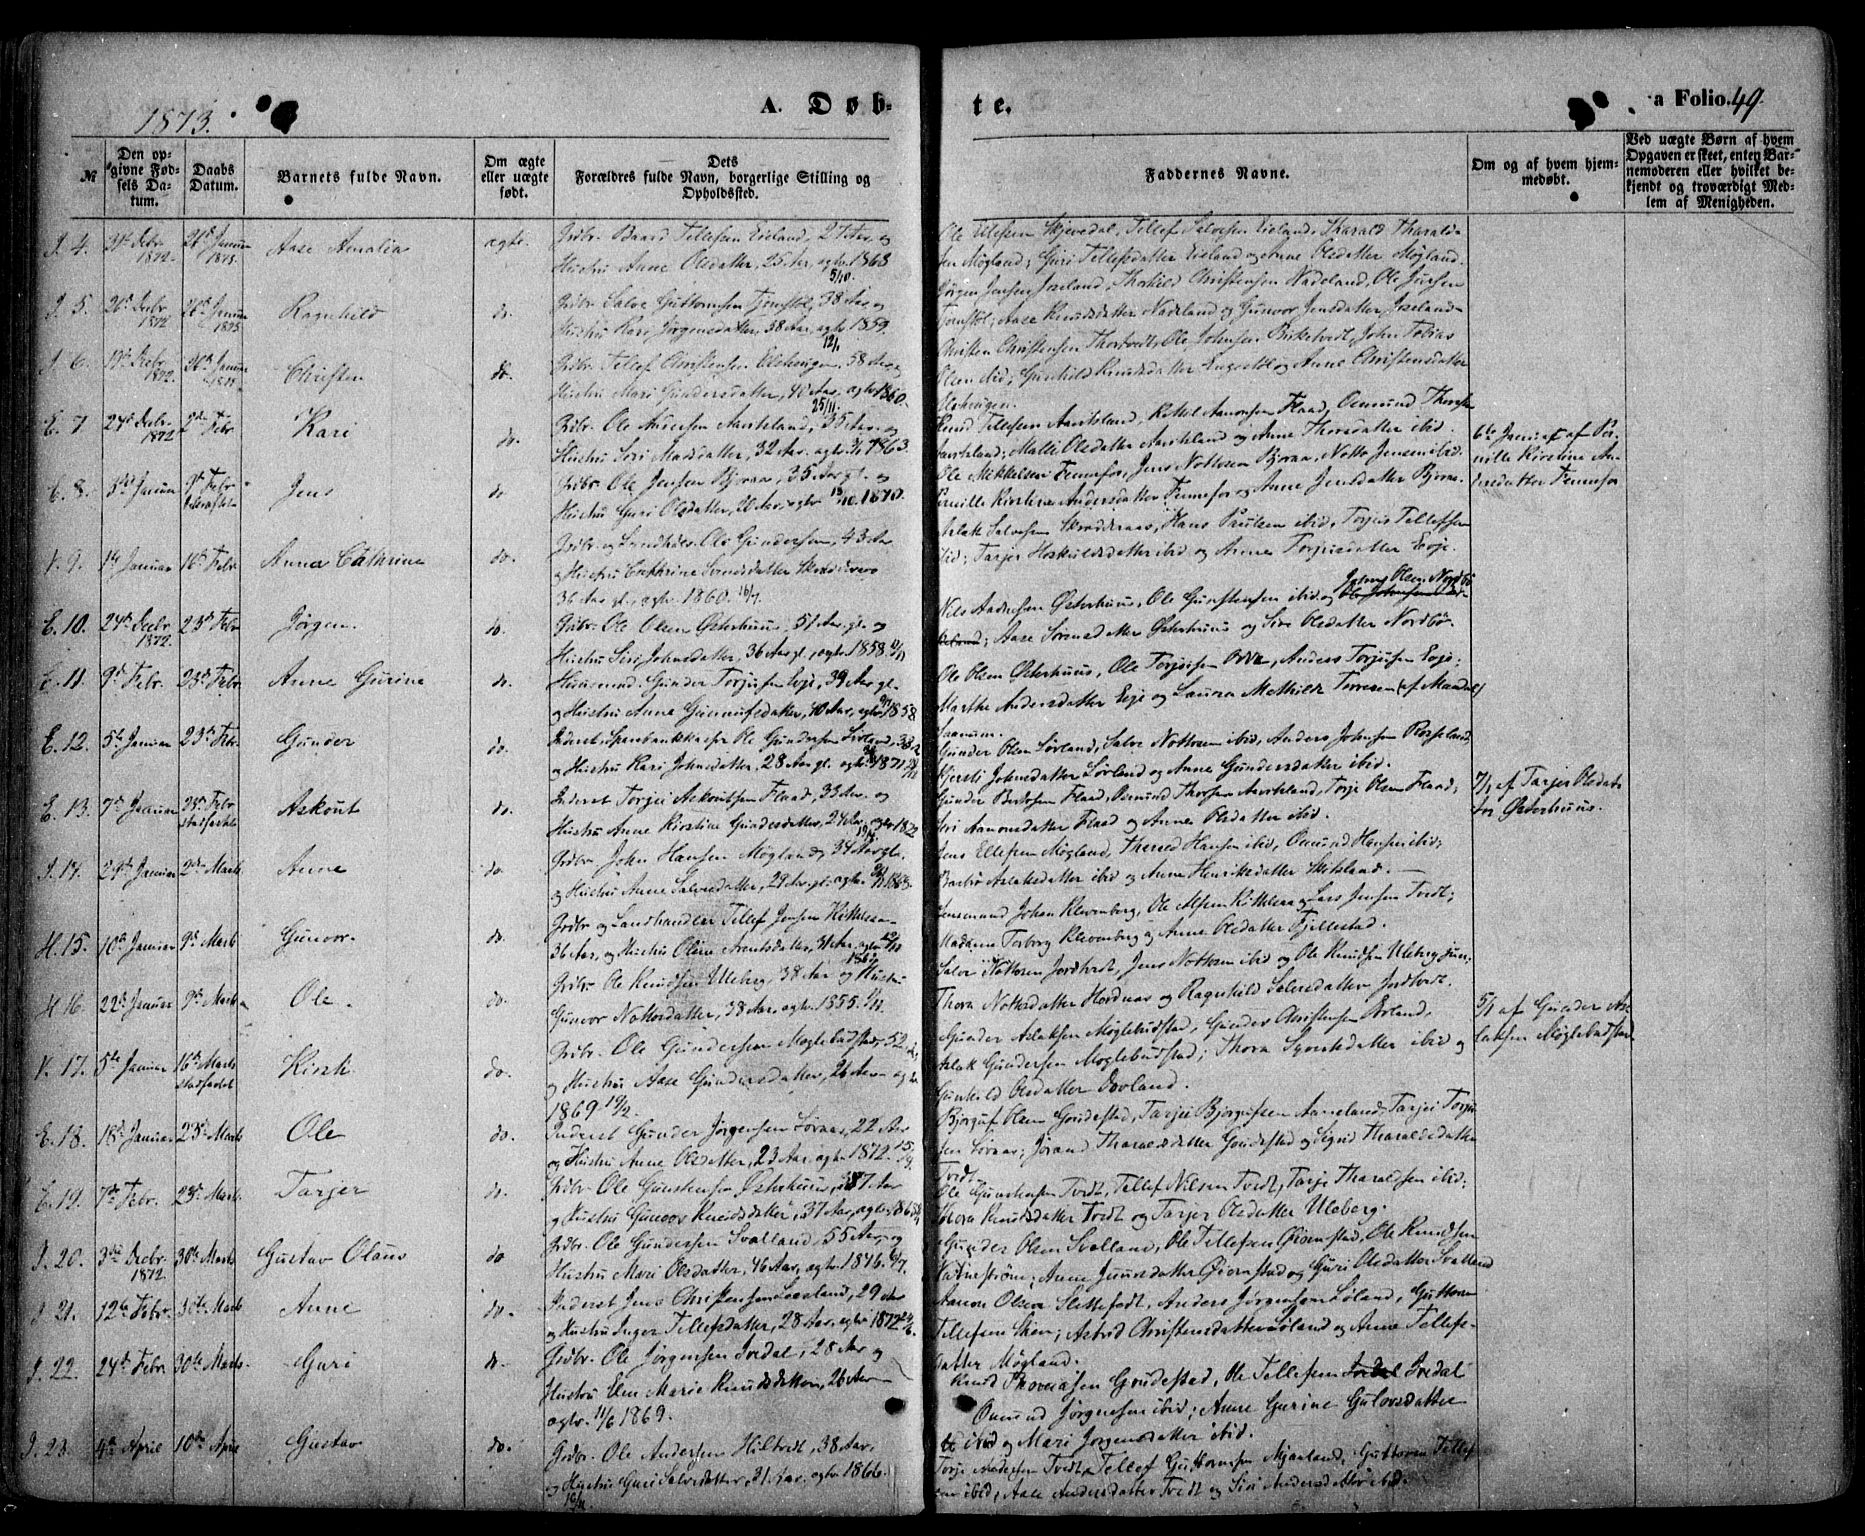 1873.
A. Døb-
te.
a Folio. 49
№
Den op-
givne Fød-
sels Da-
tum.
Daabs
Datum.
Barnets fulde Navn.
Om ægte
eller uægte
født.
Dets
Forældres fulde Navn, borgerlige Stilling og
Opholdssted.
Faddernes Navne.
Om og af hvem hjem-
medøbt.
Ved uægte Børn af hvem
Opgaven er skeet, enten Bar-
nemoderen eller hvilket be-
kjendt og troværdigt Med-
lem af Menigheden.
I. 4. Decbr 1872. Januar 1873. Aase Amalia ægte. Grdbr. Baard Tellefsen Eieland, 27 Aar, og
Hustru Anne Olsdatter, 25 Aar, agtv. 1868 5/10.
Ole Ellefsen Skjevedal, Tellef Salvesen Eieland, Tharald Tharald-
sen Mögland; Guri Tellefsdatter Eieland og Anne Olsdatter Mögland.
I. 5. 26d Decbr 1872 26d Januar 1873. Ragnhild do. Grdbr. Salve Guttormsen Tjomstöl, 38 Aar og
Hustru Kari Jörgensdatter, 38 Aar, agtv 1859.
Jörgen Jensen Joseland, Thorkild Christensen Nadeland, Ole Jensen
Tjomstöl; Aase Knudsdatter Nadeland og Gunvor Jensdatter, Joseland
I 6. Decbr 1872. 26d Januar Christen do. Grdbr. Tellef Christensen Elshaugen, 58 Aar og
Hustru Mari Gundersdatter, 40 Aar, agtv 1860.
Christen Christensen Thortvedt, Ole Johnsen Birketvedt, John Tobias
Olsen ibid; Gunhild Knudsdatter Engestöl og Anne Christensdatter
Elshaugen.
E. 7. 24d Decbr 1872 2den Febr Kari do. Grdbr. Ole Andersen Aavitsland, 35 Aar. og
Hustru Siri Madsdatter, 32 Aar. agtv 1863.
Knud Tellefsen Aavitsland, Kittel Aanonsen Flaad, Omund Thorsen
Aavitsland; Malli Olsdatter Aavitsland og Anne Thorsdatter ibid.
E. 8. 3die Januar 9d Febr Jens do Grdbr. Ole Jensen Bjoraa, 35 Aar gl. og
Hustru Guri Olsdatter, 20 Aar, agtv 1870.
Ole Mikkelsen Fennefos, Jens Nottosen Bjoraa, Notto Jensen ibid.
Pernille Kirstine Andersdatter Fennefos og Anne Jensdatter Bjoraa.
6te Januar af Per-
nille Kirstine An-
dersdatter Fennefos
V. 9. 14 Januar 16d Febr Anna Cathrine do. Grdbr. og Landhdlr. Ole Gundersen, 43 Aar
og Hustru Cathrine Arnesdatter Skraideraas
36 Aar gl., agtv. 1860. 16/7.
Aslak Salvesen Skraideraas, Hans Paulsen ibid, Torjus Tellefsen
ibid; Tarjer Hoskuldsdatter ibid og Anne Torjusdatter Evje.
E. 10. 24d Decbr 1872. 23d Febr Jörgen do. Grdbr. Ole Olsen Österhuus, 51 Aar. gl. og
Hustru Siri Johnsdatter, 36 Aar gl., agtv 1858.
Nils Aadnesen Österhuus, Ole Gunstensen ibid og
Aase Sörensdatter Österhuus og Siri Olsdatter Nordbö.
E. 11. 9d Febr. 23d Febr. Anne Gurine do. Huusmand. Gunder Torjusen Evje, 39 Aar gl.
og Hustru Anne Gunnufsdatter, 40 Aar, agtv 1858
Ole Olsen Österhuus, Ole Torjusen Odde, Anders Torjusen Evje;
Marthe Andersdatter Evje og Laura Mathilde Torresen (af Mandal)
E. 12. 5te Januar 23d Febr. Gunder do. Inderst, Sparebankkasser Ole Gundersen Lörland, 38
og Hustru Kari Johnsdatter, 28 Aar gl. agtv. 1871
Gunder Olsen Lörland, Salve Nottosen ibid, Anders Johnsen Rosseland,
Kjersti Johnsdatter Lörland og Anne Gundersdatter ibid.
E. 13. 7de Januar 23d Febr stadfæstet Askout do. Inderst Torjei Askoutsen Flaad, 33 Aar. og
Hustru Anne Kirstine Gundersdatter, 24 Aar, agtv 1872
Gunder Bertesen Flaad, Omund Thorsen Aavitsland, Torje Olsen Flaad;
Siri Aanonsdatter Flaad og Anne Olsdatter ibid.
7/1 af Tarjer Olsdat-
ter Österhuus.
I. 14. 29d Januar 2den Marts Anne do. Grdbr. John Hansen Mögland, 34 Aar gl.
og Hustru Anne Salvesdatter, 29 Aar. gl. agtv
Jens Ellefsen Mögland, Hansen ibid, Omund Hansen ibid;
Barbö Aslaksdatter ibid og Anne Henriksdatter
H. 15. 10d Januar 9d Marts Gunvor. do. Grdbr. og Landhandler Tellef Jensen Kittelsaa
36 Aar, og Hustru Olene Arentsdatter, 31 Aar, agtv
Lensmand Johan Klevenberg, Ole Alfsen Kittelsaa og Lars Jensen Tvedt;
Madame Torborg Klevenberg og Anne Olsdatter Fjellestad.
H 16. 22de Januar 9d Marts Ole. do. Grdbr. Ole Knudsen Uleberg, 38 Aar og Hustru
Gunvor Nottosdatter, 38 Aar, agtv. 1855.
Salve Nottosen Jordtvedt, Jens Nottosen ibid og Ole Knudsen Uleberg jun;
Thora Nottosdatter Hodnas og Ragnhild Salvesdatter Jordtvedt.
V. 17. 5te Januar 16d Marts stadfæstet Kirsti do. Grdbr. Ole Gundersen Möglebudstad, 52
og Hustru Aase Gundersdatter, 26 Aar agtv.
1869 19/2.
Gunder Aslaksen Möglebudstad, Gunder Christensen
Aslak Gundersen Möglebudstad; Thora Syvertsdatter ibid og
Gunhild Olsdatter Dovland.
5/1 af Gunder As-
laksen Möglebudstad
E. 18. 18d Januar 23d Marts Ole do. Inderst Gunder Jörgensen Löraas, 22 Aar
og Hustru Anne Olsdatter, 23 Aar. agtv. 1872.
Bjorguf Olsen Goudestad, Tarjei Bjorgufsen Aaneland, Tarjei Torju-
sen Löraas; Jörand Tharaldsdatter Goudestad og Sigrid Tharaldsdatter
Tvedt.
E. 19. 7de Febr. 23d Marts Tarjer do. Grdbr. Ole Gunstensen Österhuus, 37 Aar
og Hustru Gunvor Knudsdatter, 37 Aar, agtv. 1865
Ole Gunstensen Tvedt, Tellef Nilsen Tvedt, Tarje Tharaldsen ibid.
Thora Knudsdatter Tvedt og Tarjer Olsdatter Uleberg.
I. 20. 3die Decbr. 1872. 30te Marts Gustav Olaus do Grdbr. Ole Gundersen Svalland, 55 Aar, og
Hustru Mari Olsdatter, 46 Aar, agtv. 1846.
Gunder Olsen Svalland, Ole Tellefsen Öienstad, Ole Knudsen
Anne Jensdatter Öienstad og Guri Olsdatter Svalland
I. 21. 12te Febr. 30te Marts Anne do. Inderst Jens Christensen Loeland, 29 Aar
og Hustru Inger Tellefsdatter, 28 Aar, agtv 1872
Aanon Olsen Slettefodt, Anders Jörgensen Löland, Guttorm
Tellefsen Skien; Astrid Christensdatter Löland og Anne Tellefs-
datter Mögland.
I. 22. 24d Febr 30te Marts Guri do. Grdbr. Ole Jörgensen Ivedal, 28 Aar og
Hustru Elen Marie Knudsdatter, 26 Aar
agtv. 11/6 1869.
Knud Thoresen Goudestad, Ole Tellefsen Ivedal
Omund Jörgensen ibid; Anne Gurine Gulovsdatter
ibid og Mari Jörgensdatter ibid.
I. 23. 4de April 10de April Gustav do. Grdbr. Ole Andersen Hiltvedt, 38 Aar,
og Hustru Guri Salvesdatter, 31 Aar. agtv. 1866.
Torje Andersen Tvedt, Tellef Guttormsen Mjaaland, Guttorm Tellef-
sen ibid, Aase Andersdatter Tvedt og Siri Andersdatter ibid.